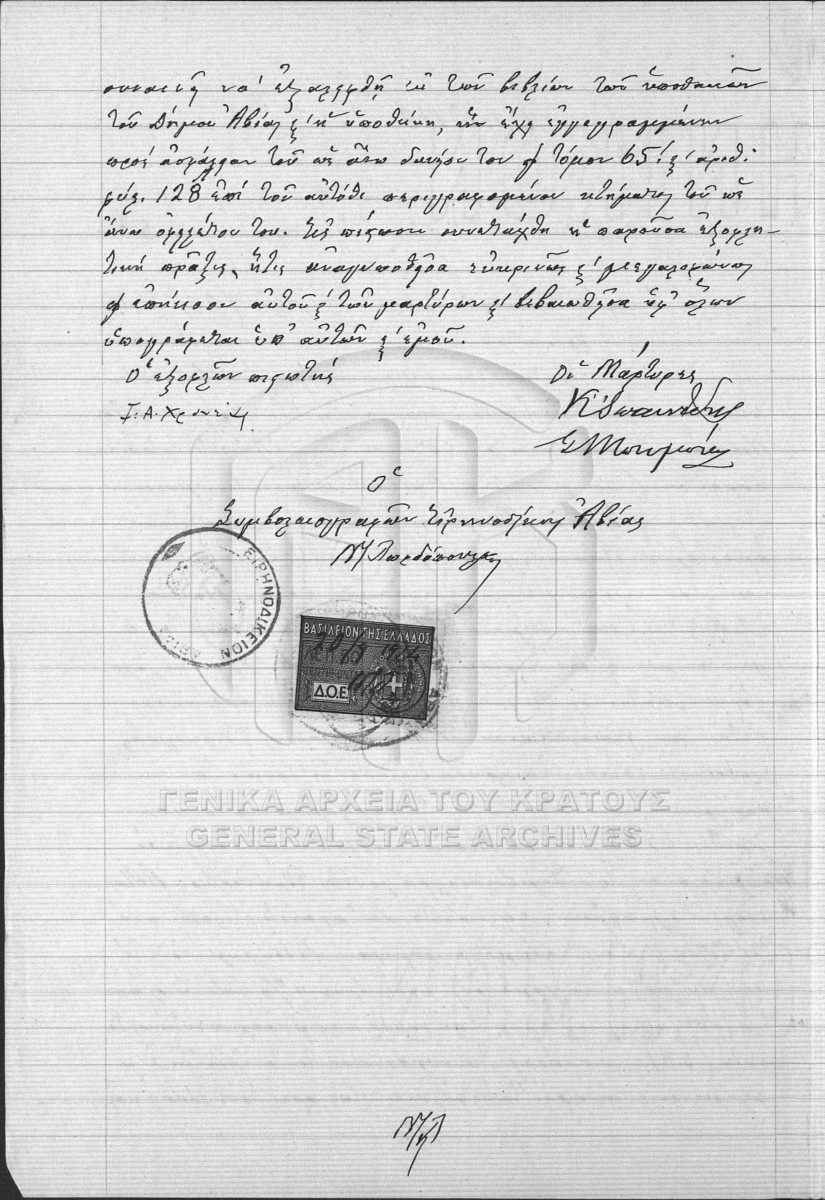 συναινῇ νὰ ἐξαλειφθῇ ἐκ τῶν βιβλίων τῶν ὑποθηκῶν
τοῦ Δήμου Ἀβίας ἡ ὑποθήκη, ἣν εἶχε ἐγγεγραμμένην
πρὸς ἀσφάλειαν τοῦ ὡς ἄνω δανείου του τόμον 65 ἀριθ:
φύλ. 128 ἐπὶ τοῦ αὐτόθι περιγραφομένου κτήματος τοῦ ὡς
ἄνω ὀφειλέτου του. Εἰς πίστωσιν συνετάχθη ἡ παροῦσα ἐξοφλη-
τικὴ πρᾶξις, ἥτις ἀναγνωσθεῖσα εὐκρινῶς μεγαλοφώνως
εἰς ἐπήκοον αὐτοῦ τῶν μαρτύρων βεβαιωθεῖσα ὑφ' ὅλων
ὑπογράφεται ὑπ' αὐτῶν ἐμοῦ.
Ὁ ἐξοφλῶν πιστωτής
Οἱ Μάρτυρες
Ὁ
Συμβολαιογραφῶν Εἰρηνοδίκης Ἀβίας
ΕΙΡΗΝΟΔΙΚΕΙΟΝ
ΒΑΣΙΛΕΙΟΝ ΤΗΣ ΕΛΛΑΔΟΣ
Δ.Ο.Ε.
ΓΕΝΙΚΑ ΑΡΧΕΙΑ ΤΟΥ ΚΡΑΤΟΥΣ
GENERAL STATE ARCHIVES